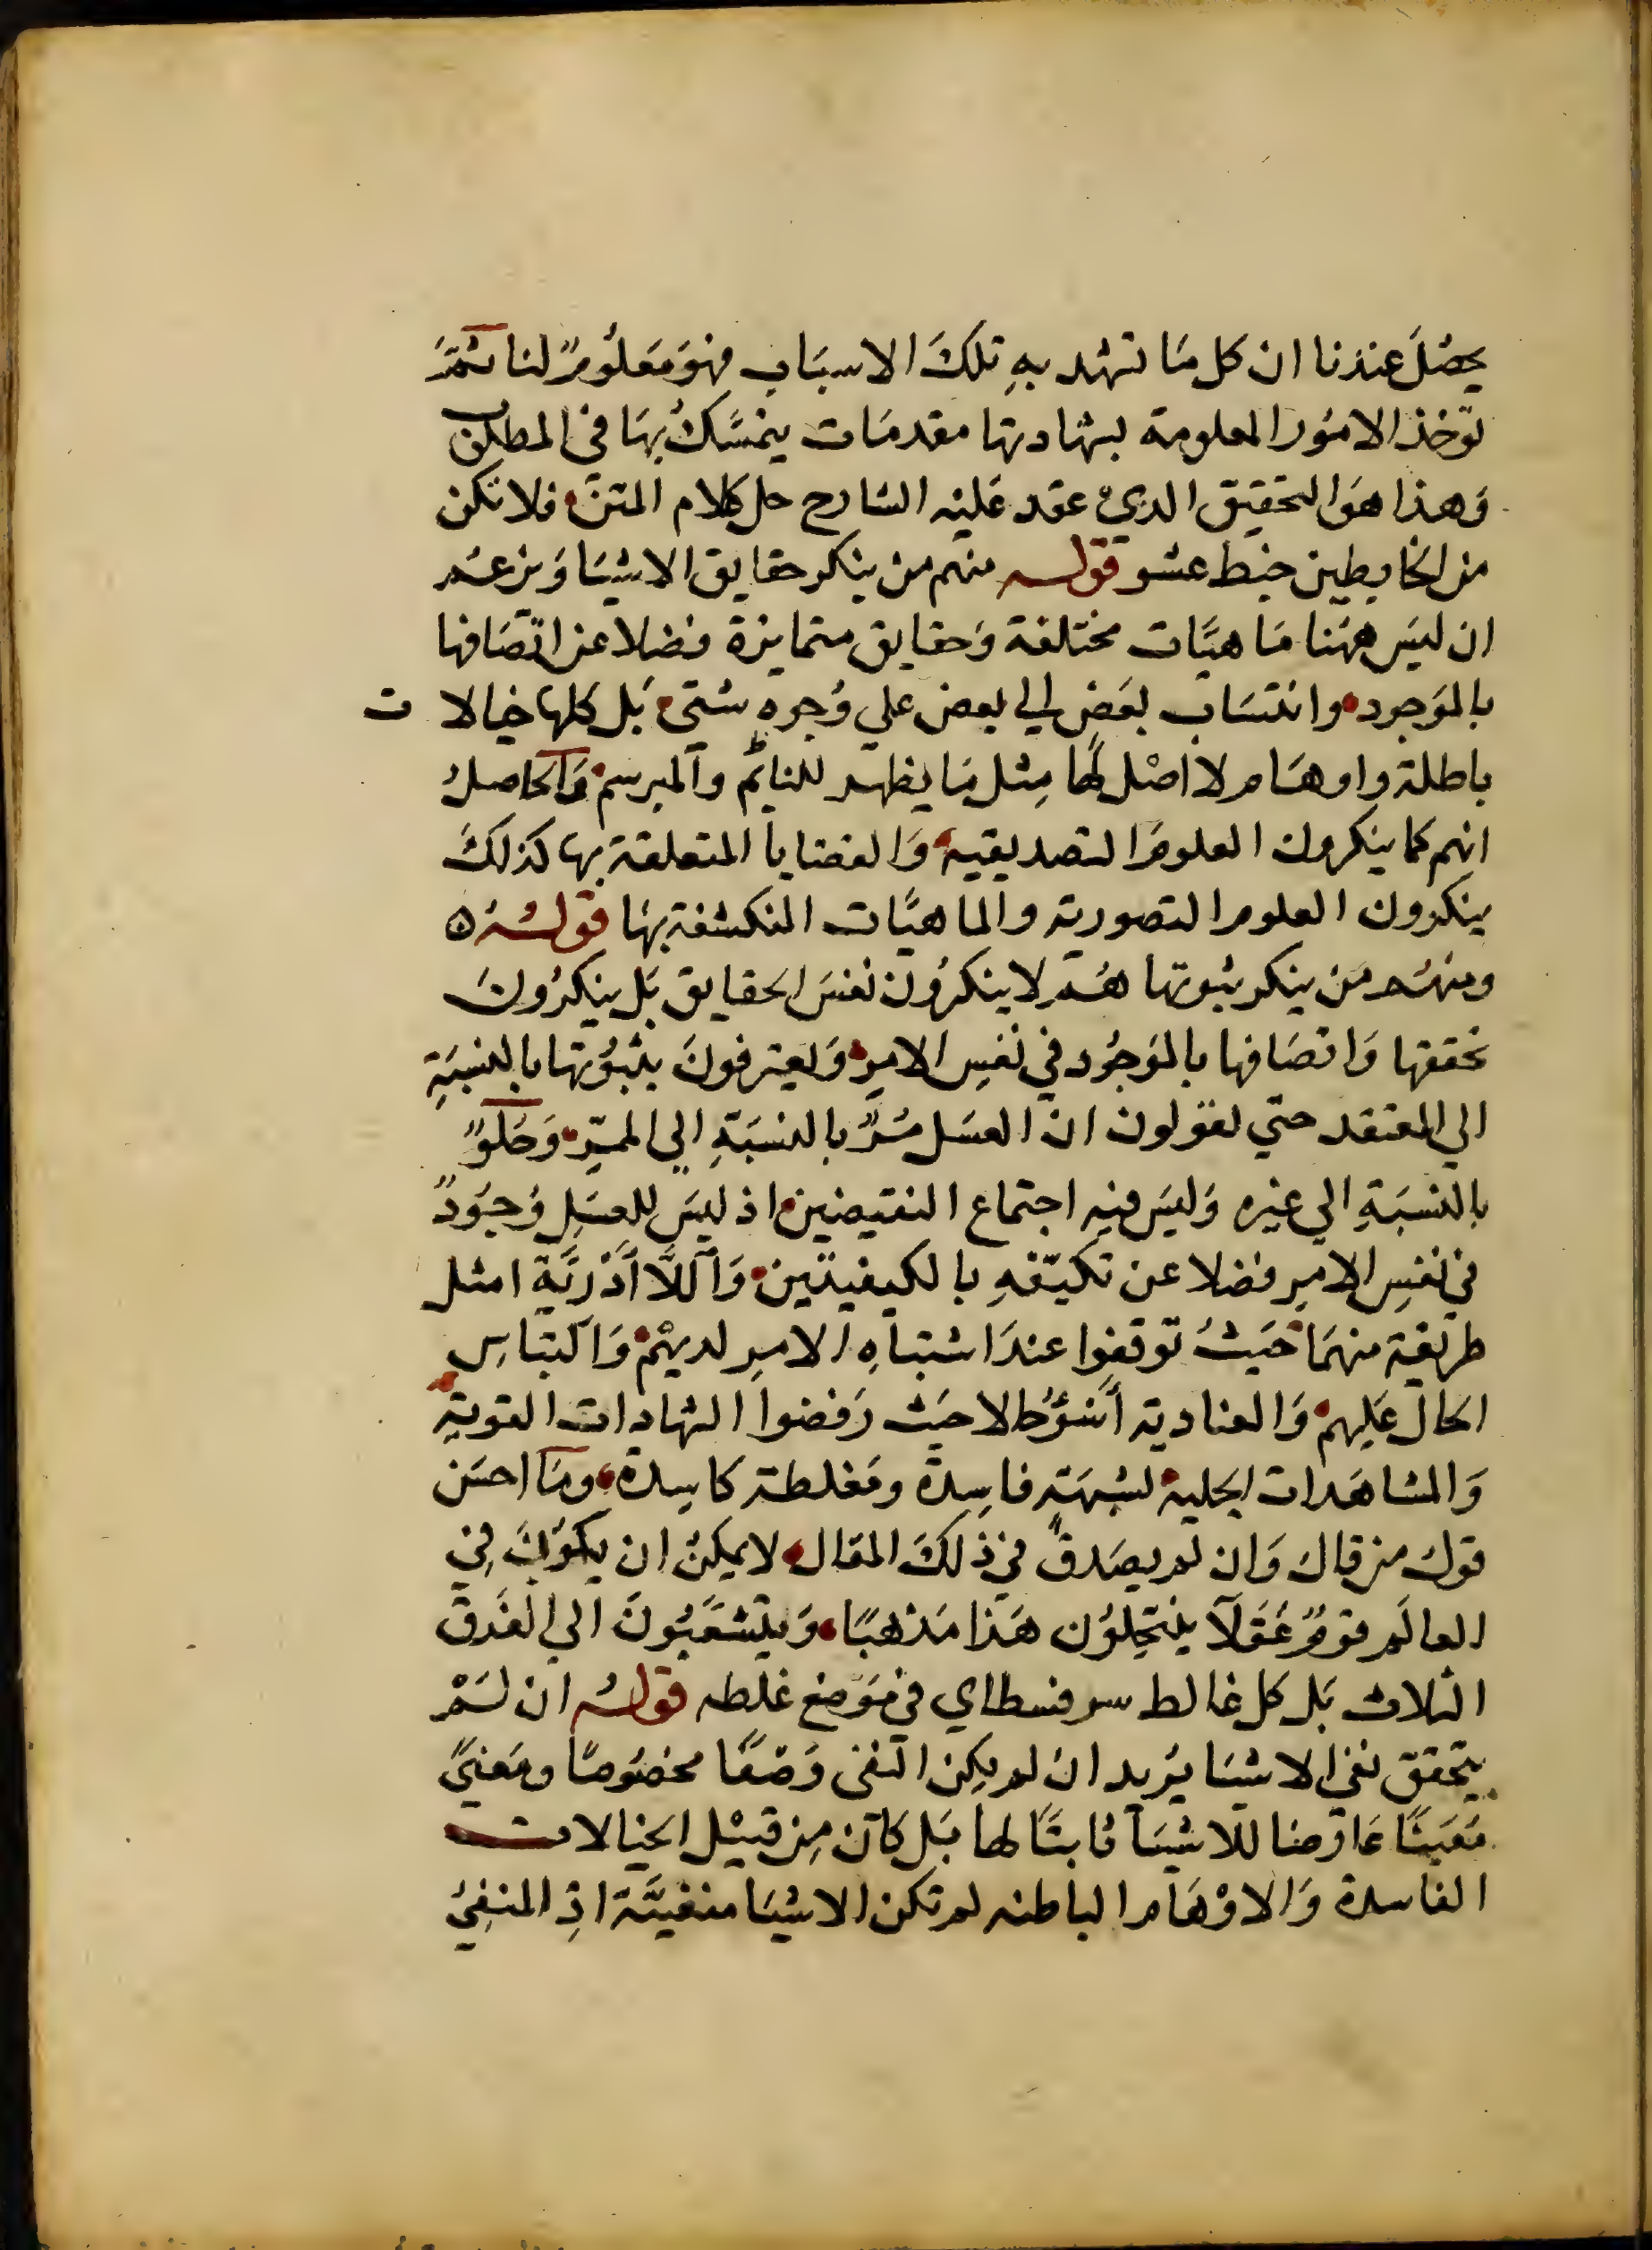 يحصُلَ عندنا ان كل مَا تشهد بهِ تلكَ الاسبَاب فهوَ مَعلُومٌ لنا ثمَّ
تؤخذ الامُور المعلومة بشهادتها مقدمَات يتمسَّكُ بهَا في المطلب
وَهذا هوَ التحقيق الدي عقد عَليْه الشارح حل كلام المتن فلا تكن
من الخابطين خبط عشو قولـه منهم من ينكر حقايق الاشيَا وَيزعم
ان ليسَ ههُنا مَاهيَّات مختلفة وَحقايق متمايزة فضلا عن اتصَافها
بالموَجود وانتسَاب بعَضٍ الي بعض علي وُجوه شتى بَل كلها خيالات
باطلة واوهَام لا اصْل لهَا مِثل مَا يظهر للنايِّم والمبرسم وَالحاصلُ
انهم كما ينكرون العلومَ التصديقيه وَالقضايا المتعلقة بها كذلكَ
ينكرون العلوم التصورية والماهيَّات المنكشفة بهَا قولـهُ ٥
ومنهُم مَن ينكر ثبوتها هُم لا ينكرُون نفسَ الحقايق بَل ينكرُونَ
تحققها وَاتصَافها بالموَجُود في نفسِ الامرِ وَيعترفونَ بثبُوتها بالنسبَةِ
الي المعتقد حتي يقولون ان العسَل مُرٌّ بالنسبَةِ الي الممَرِّ وَحَلوٌ
بالنسبَةِ الي غيره وَليسَ فيه اجتماع النقيضين اذ ليسَ للعسَلِ وُجوُدٌ
في نفسِ الامرِ فضلا عن تكيّفهِ بالكيفيتين وَاللَّا أَدْرِيَّة امثل
طريقة منهمَا حَيثُ توقفوا عندَ اشتباهِ الامرِ لديهْم وَالتباسِ
الحال عَليهم وَالعنادية أسْوَؤُ حالا حَيث رَفضوا الشهادات القويةِ
وَالمشاهَدات الجَليه لشبهَةٍ فاسِدة ومَغلطة كاسِدة ومَا احسَن
قول من قالَ وَان لم يصَدق في ذلكَ المقال لا يمكنُ ان يكوُنَ في
العالَم قومٌ عُقَلآ ينتحِلوُن هَذا مَذهبًا وَيتشعَّبُونَ الي الفَرق
الثلاث بَل كل غالط سوفسطاي في موَضع غلطه قولـهُ ان لَمْ
يتحقق نفي الاشيَا يُريد ان لم يكن النفي وَصْفًا مخصُوصًا ومَعنيً
مَعَينًا عَارضا للاشيَآ ثابتًا لها بَل كان مِن قبيْل الخيالات
الفاسدة وَالاوْهَام الباطنه لم تكن الاشيَا منفيَّة اذِ المنفِيُ